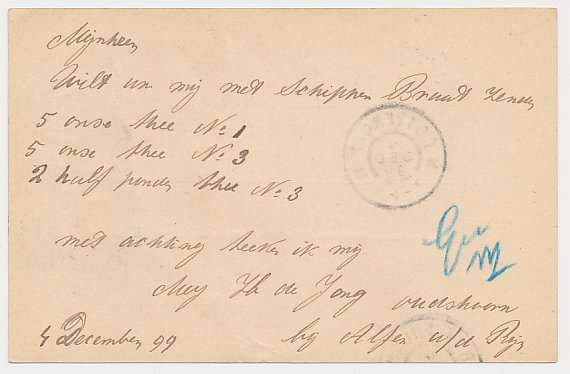 Mijnheer
Wilt uw mij met Schipper Braat zenden
5 onse thee No 1
5 onse thee No 3
2 half ponder thee No 3
met achting teeken ik mij
Mej de Jong oudshoorn
4 December 99 bij Alfen a/d Rijn